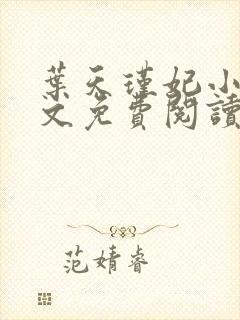 葉天瑾妃小
文免費閱讀
范婧睿